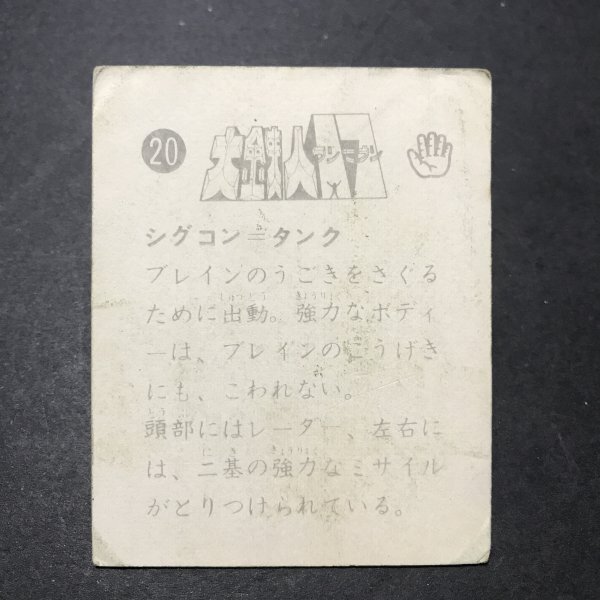 20 大鉄人 ワンセブン 17
シグコン=タンク
ブレインのうごきをさぐる
ために出動。強力なボディ
ーは、ブレインのこうげき
にも、こわれない。
頭部にはレーダー、左右に
は、二基の強力なミサイル
がとりつけられている。